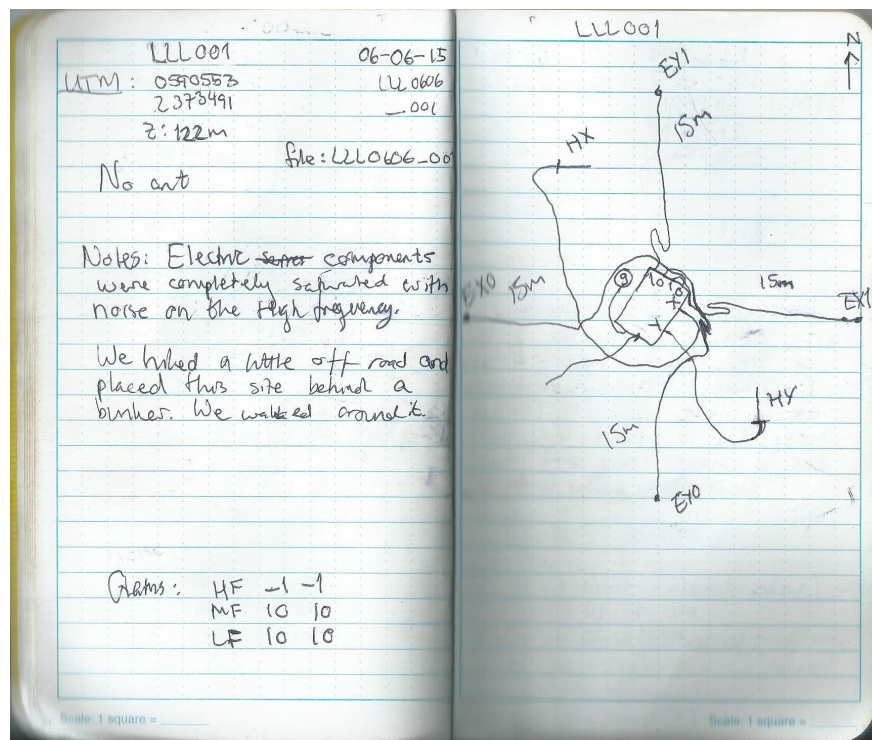 LLL001
06-06-15
UTM: 0590553
LLL0606
2373491
_001
Z: 122m
file: LLL0606_001
No ant
Notes: Electric components
were completely saturated with
noise on the High frequency.
We hiked a little off road and
placed this site behind a
bunker. We walked around it.
Gains: HF -1 -1
MF 10 10
LF 10 10
Scale: 1 square =
LLL001
N
EY1
15m
HX
EX0 15m
9
15m
EX1
HY
15m
EY0
Scale: 1 square =